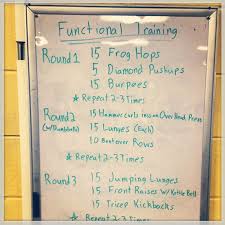 Functional Training
Round 1 15 Frog Hops
5 Diamond Pushups
15 Burpees
★ Repeat 2-3 Times
Round 2 15 Hammer curls into an Over Head Press
(w/Dumbbells) 15 Lunges (Each)
10 Bent over Rows
★ Repeat 2-3 Times
Round 3 15 Jumping Lunges
15 Front Raises w/ Kettle Bell
15 Tricep Kickbacks
★ Repeat 2-3 Times